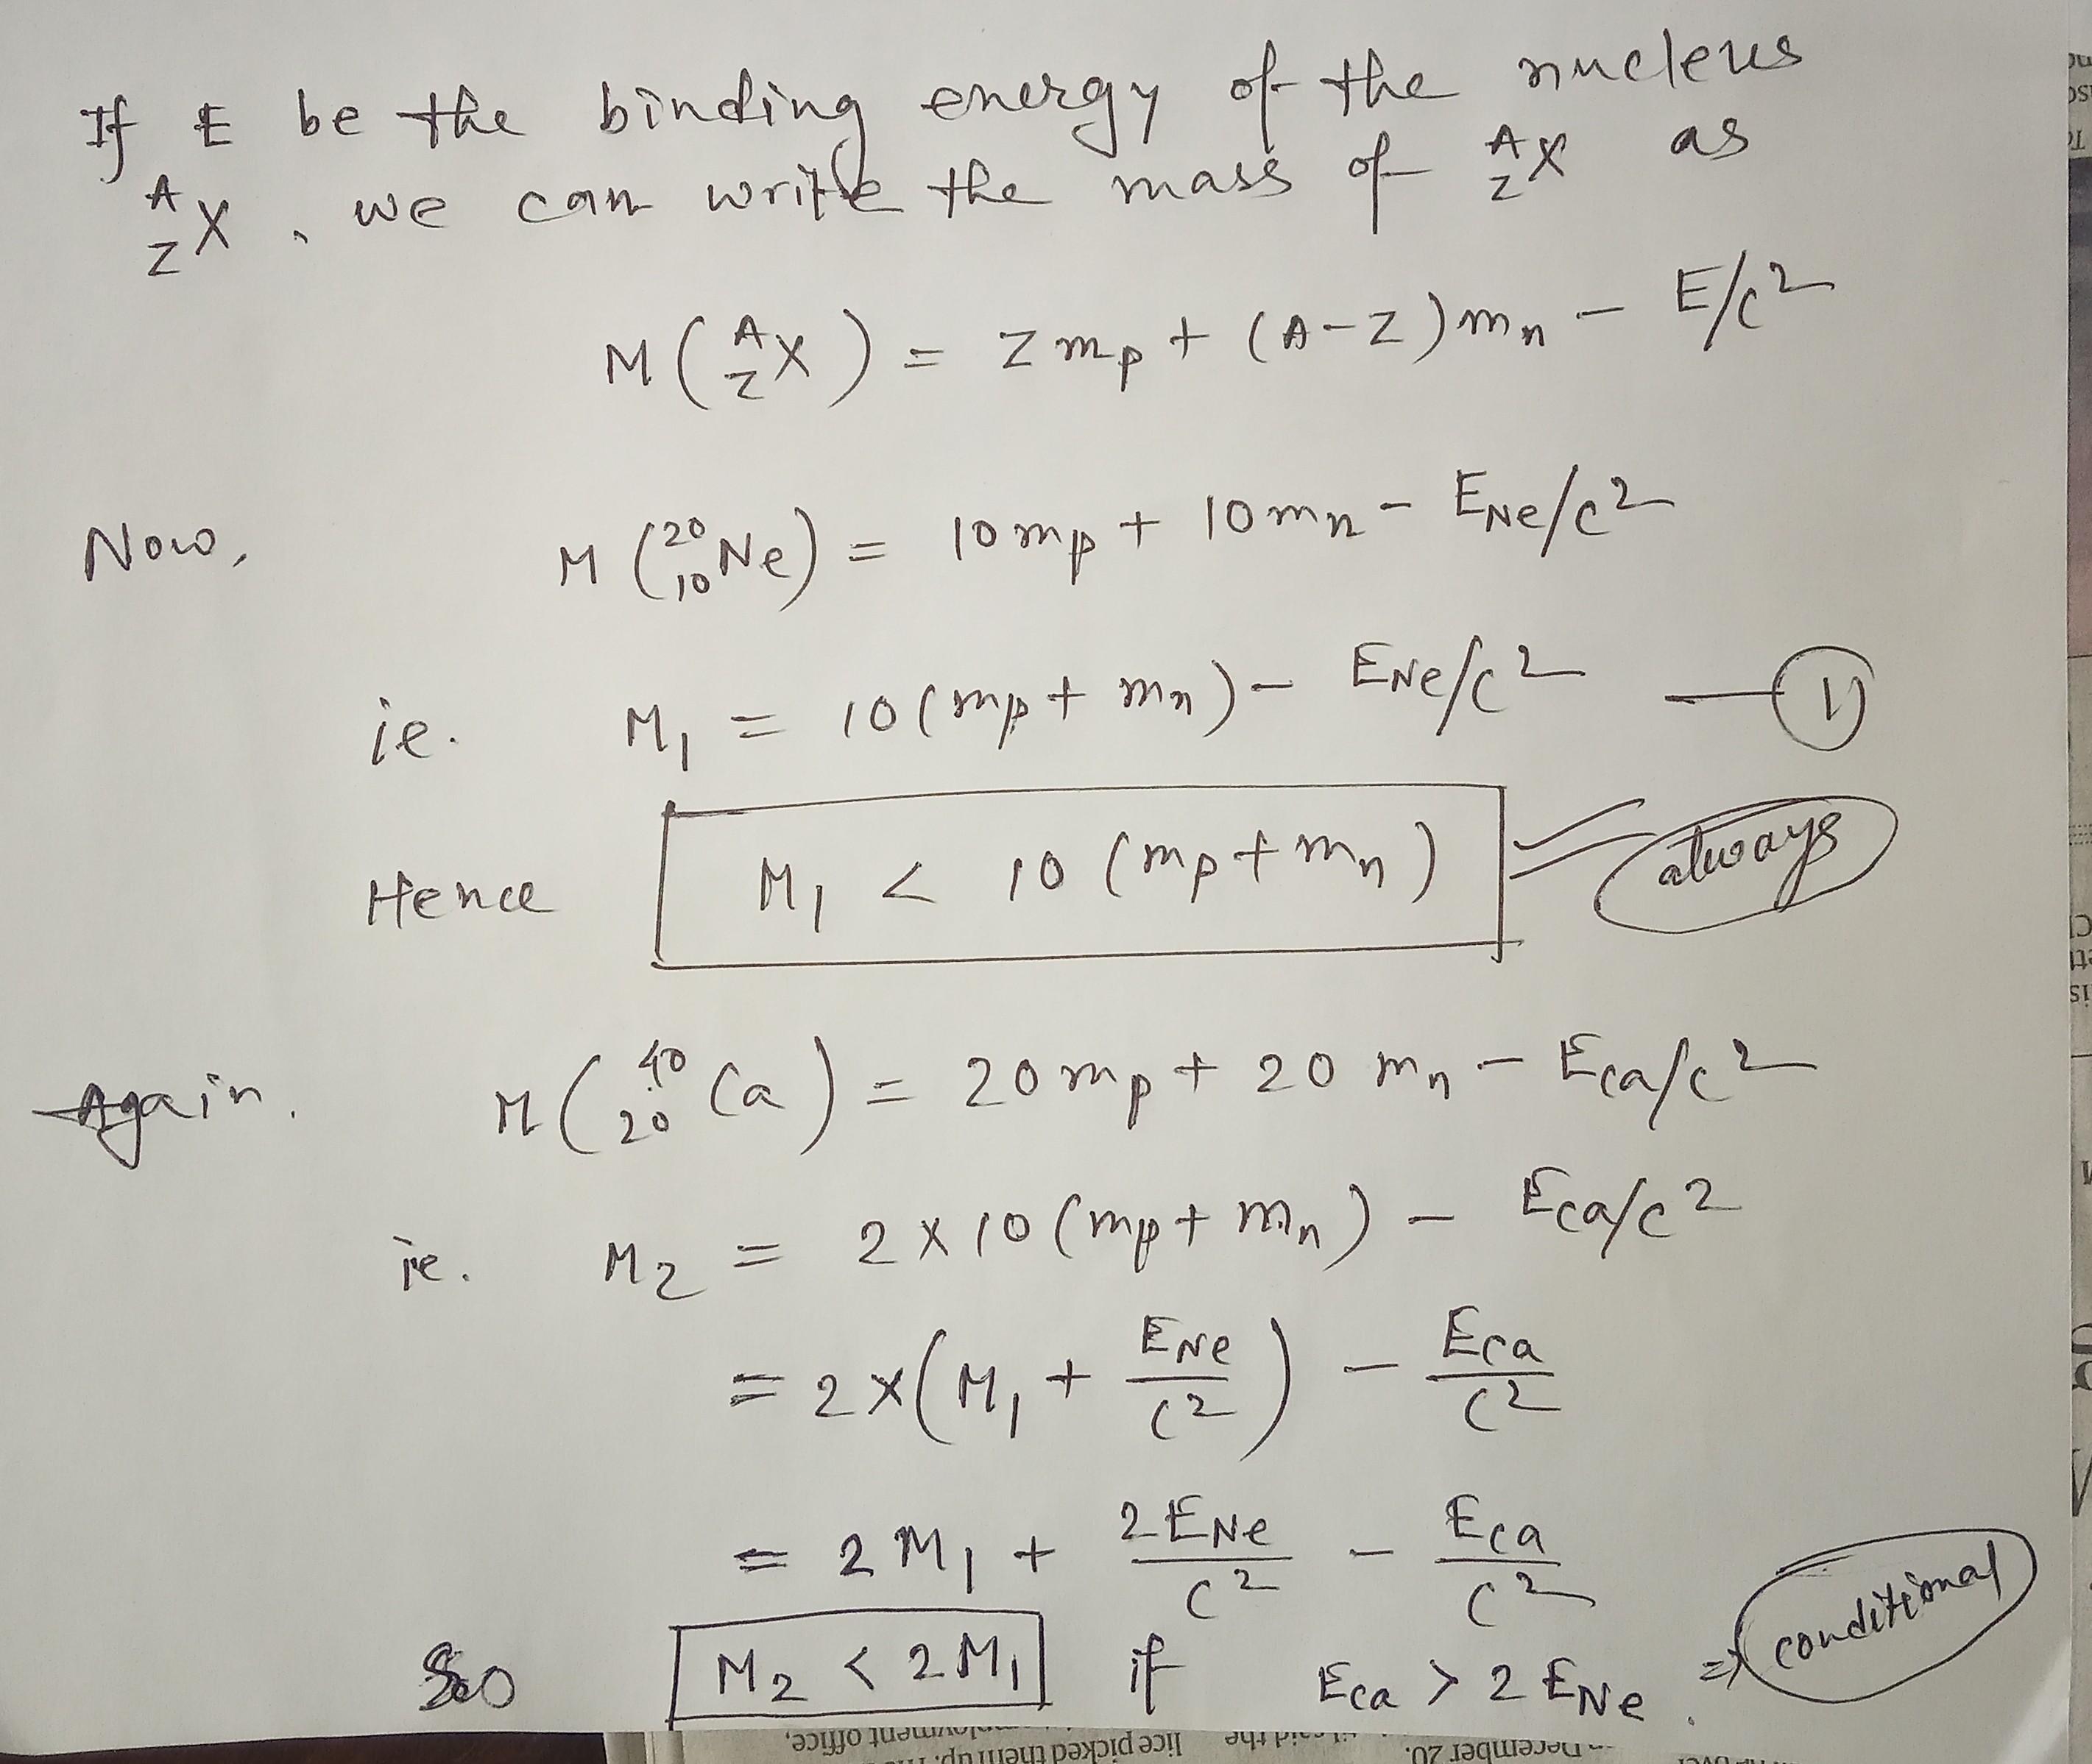 If E be the binding energy of the nucleus
^A_Z X, we can write the mass of ^A_Z X as
M(^A_Z X) = Z m_p + (A-Z) m_n - E/c^2
Now, M(^20_10 Ne) = 10 m_p + 10 m_n - E_Ne/c^2
ie. M_1 = 10(m_p + m_n) - E_Ne/c^2 — 1)
Hence M_1 < 10 (m_p + m_n) always
Again, M(^40_20 Ca) = 20 m_p + 20 m_n - E_Ca/c^2
ie. M_2 = 2 x 10 (m_p + m_n) - E_Ca/c^2
= 2 x (M_1 + E_Ne/c^2) - E_Ca/c^2
= 2 M_1 + 2 E_Ne/c^2 - E_Ca/c^2
So M_2 < 2 M_1 if E_Ca > 2 E_Ne. ⇒ conditional
December 20.
lice picked them up.
office,